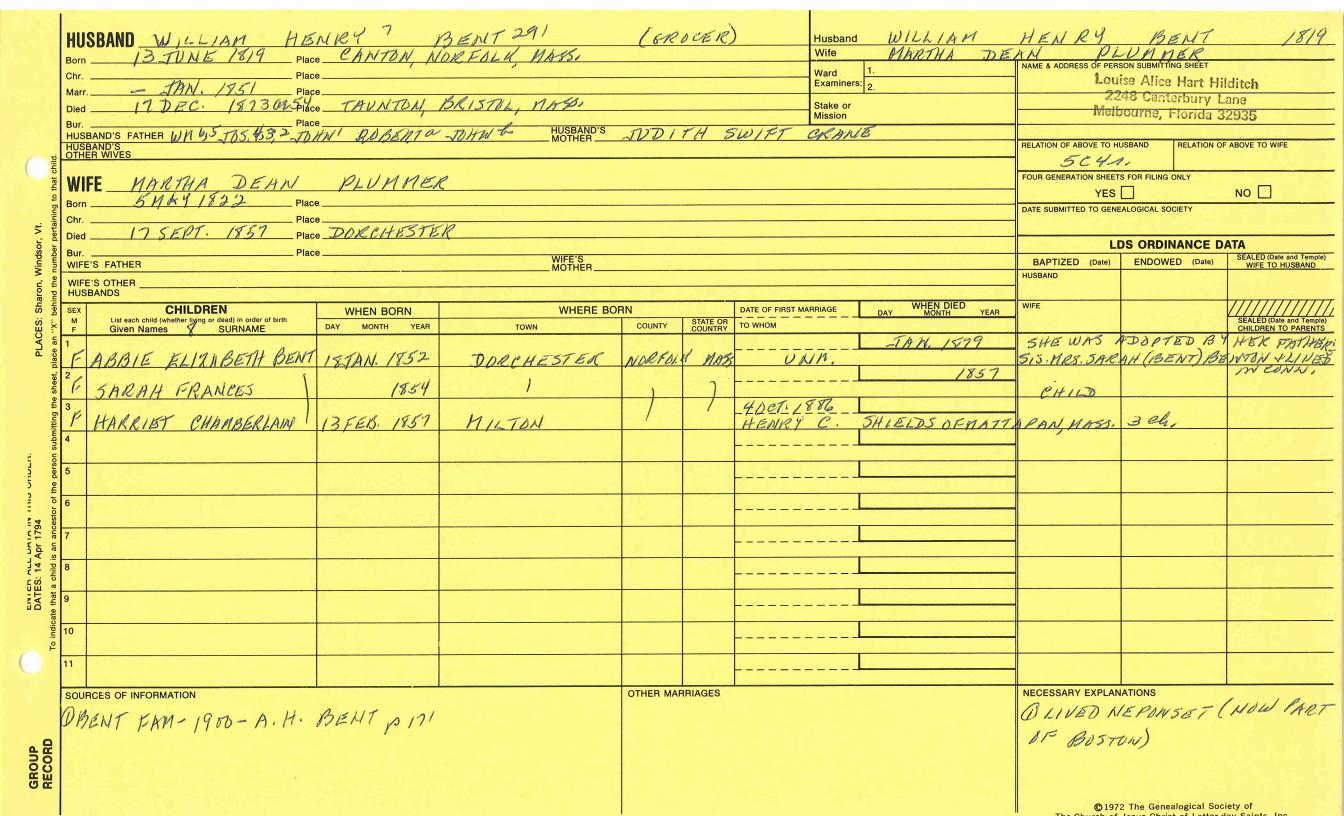 HUSBAND WILLIAM HENRY 7 BENT 291 (GROCER)
Born 13 JUNE 1819 Place CANTON, NORFOLK, MASS.
Chr. Place
Marr. — JAN. 1851 Place
Died 17 DEC. 1873 Place TAUNTON, BRISTOL, MASS.
Bur. Place
HUSBAND'S FATHER JOHN ROBERT JOHN HUSBAND'S MOTHER JUDITH SWIFT CRANE
HUSBAND'S OTHER WIVES
WIFE MARTHA DEAN PLUMMER
Born 5 MAY 1822 Place
Chr. Place
Died 17 SEPT. 1857 Place DORCHESTER
Bur. Place
WIFE'S FATHER WIFE'S MOTHER
WIFE'S OTHER HUSBANDS
Husband WILLIAM HENRY BENT 1819
Wife MARTHA DEAN PLUMMER
Ward Examiners: 1. 2.
Stake or Mission
NAME & ADDRESS OF PERSON SUBMITTING SHEET
Louise Alice Hart Hilditch
2248 Canterbury Lane
Melbourne, Florida 32935
RELATION OF ABOVE TO HUSBAND RELATION OF ABOVE TO WIFE
5C4r.
FOUR GENERATION SHEETS FOR FILING ONLY
YES NO
DATE SUBMITTED TO GENEALOGICAL SOCIETY
LDS ORDINANCE DATA
BAPTIZED (Date) ENDOWED (Date) SEALED (Date and Temple) WIFE TO HUSBAND
HUSBAND
WIFE
SEALED (Date and Temple) CHILDREN TO PARENTS
SEX M F CHILDREN WHEN BORN WHERE BORN DATE OF FIRST MARRIAGE WHEN DIED
List each child (whether living or dead) in order of birth
Given Names 8 SURNAME DAY MONTH YEAR TOWN COUNTY STATE OR COUNTRY TO WHOM DAY MONTH YEAR
1 JAN. 1879 SHE WAS ADOPTED BY HER FATHER'S
F ABBIE ELIZABETH BENT 18 JAN. 1852 DORCHESTER NORFOLK MASS UNM. SIS. MRS. SARAH (BENT) BENTON & LIVED
IN CONN.
2 1857
F SARAH FRANCES 1854 CHILD
3 4 OCT. 1886
F HARRIET CHAMBERLAIN 13 FEB. 1857 MILTON HENRY C. SHIELDS OF MATTAPAN, MASS. 3 ch.
4
5
6
7
8
9
10
11
SOURCES OF INFORMATION OTHER MARRIAGES NECESSARY EXPLANATIONS
① BENT FAM - 1900 - A.H. BENT p 171
① LIVED NEPONSET (NOW PART
OF BOSTON)
©1972 The Genealogical Society of
The Church of Jesus Christ of Latter-day Saints, Inc.
PLACES: Sharon, Windsor, Vt.
ENTER ALL DATA IN THIS ORDER:
DATES: 14 Apr 1794
To indicate that a child is an ancestor of the person submitting the sheet, place an "X" behind the number pertaining to that child.
GROUP RECORD